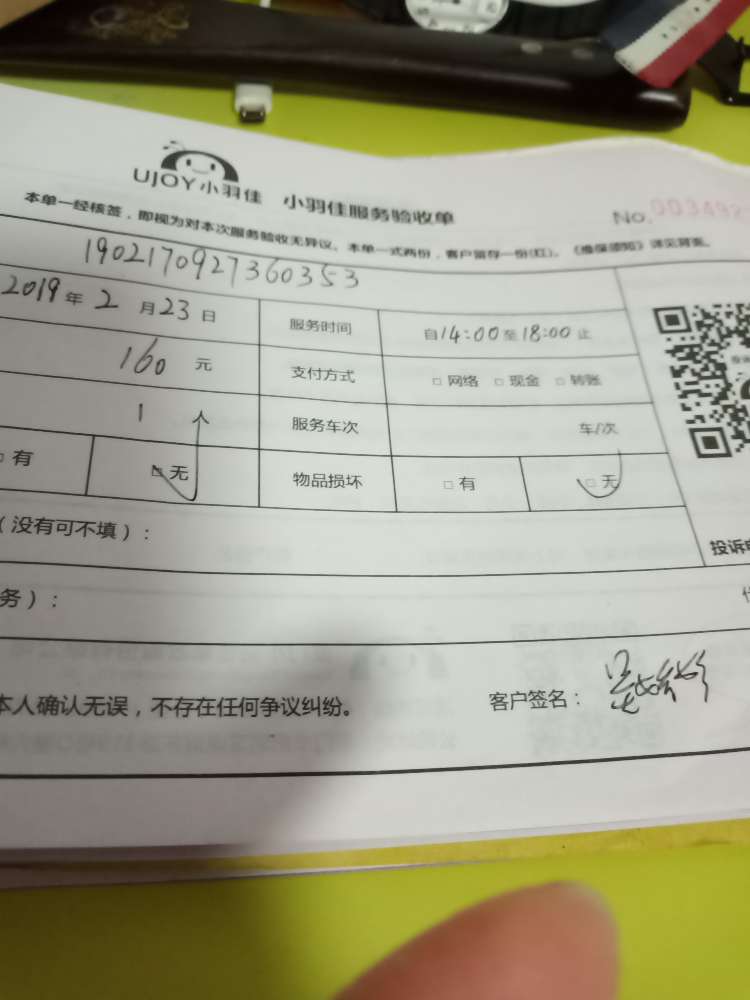 UJOY小羽佳 小羽佳服务验收单 No.003492
本单一经核签，即视为对本次服务验收无异议。本单一式两份，客户留存一份(红)。《维保须知》详见背面。
1902170927360353
2019年2月23日 服务时间 自14:00至18:00止
160元 支付方式 □网络 □现金 □转账
1人 服务车次 车/次
□有 □无 物品损坏 □有 □无
（没有可不填）：
投诉
务）：
本人确认无误，不存在任何争议纠纷。 客户签名：